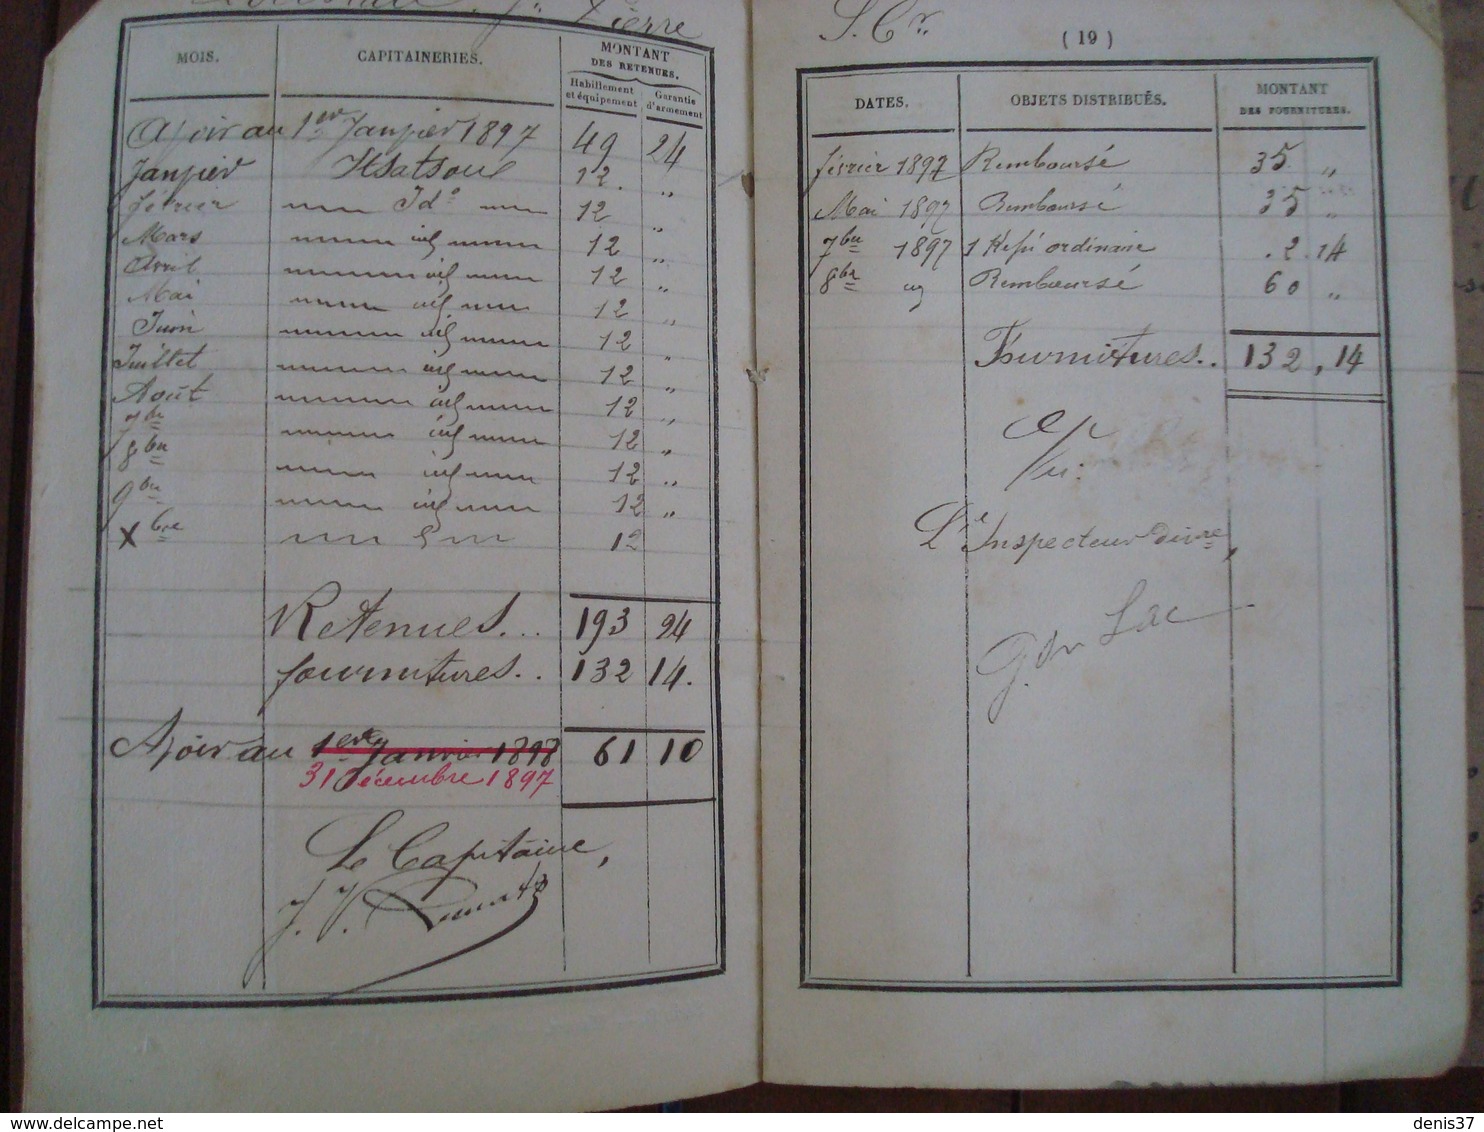 Jn Pierre
MOIS.
CAPITAINERIES.
MONTANT
DES RETENUES.
Habillement
et équipement
Garantie
d'armement
Avoir au 1er Janvier 1897 49 24
Janvier 12. "
février Ido 12 "
Mars id 12 "
Avril id 12 "
Mai id 12 "
Juin id 12 "
Juillet id 12 "
Août id 12 "
7bre id 12 "
8bre id 12 "
9bre id 12 "
Xbre 12
Retenues... 193 24
fournitures.. 132 14.
Avoir au 1er Janvier 1898 61 10
31 Décembre 1897
Le Capitaine,
S. Cr
( 19 )
DATES.
OBJETS DISTRIBUÉS.
MONTANT
DES FOURNITURES.
février 1897 Remboursé 35 "
Mai 1897 Remboursé 35 "
7bre 1897 1 Képi ordinaire . 2 . 14
8bre id Remboursé 60 "
Fournitures.. 132 , 14
Vu:
L'Inspecteur
delcampe.net
denis37